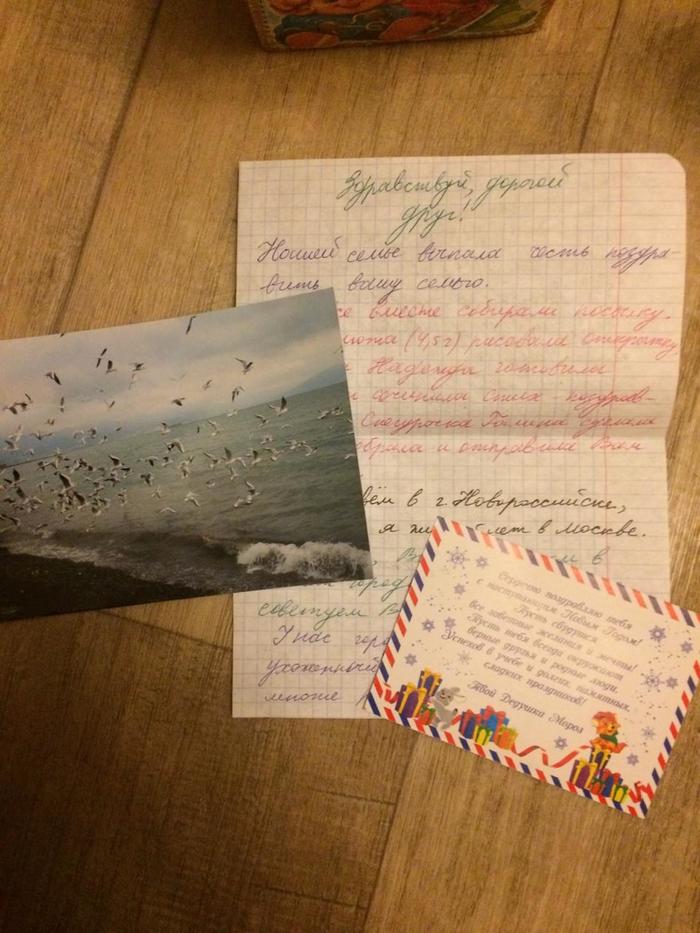 Здравствуй, дорогой
друг!
Нашей семье выпала честь поздра-
вить вашу семью.
все вместе собирали посылку.
(4,5 г) рисовала открытку,
Надежда готовила
и сочинила стих - поздрав-
Снегурочка Галина сделала
собрала и отправила Вам
в г. Новороссийске,
я лет в Москве.
В
город
советуем В
У нас
ухоженный
Сердечно поздравляю тебя
с наступающим Новым Годом!
Пусть сбудутся
все заветные желания и мечты!
Пусть тебя всегда окружают
верные друзья и родные люди.
Успехов в учебе и долгих, памятных,
сладких праздников!
Твой Дедушка Мороз